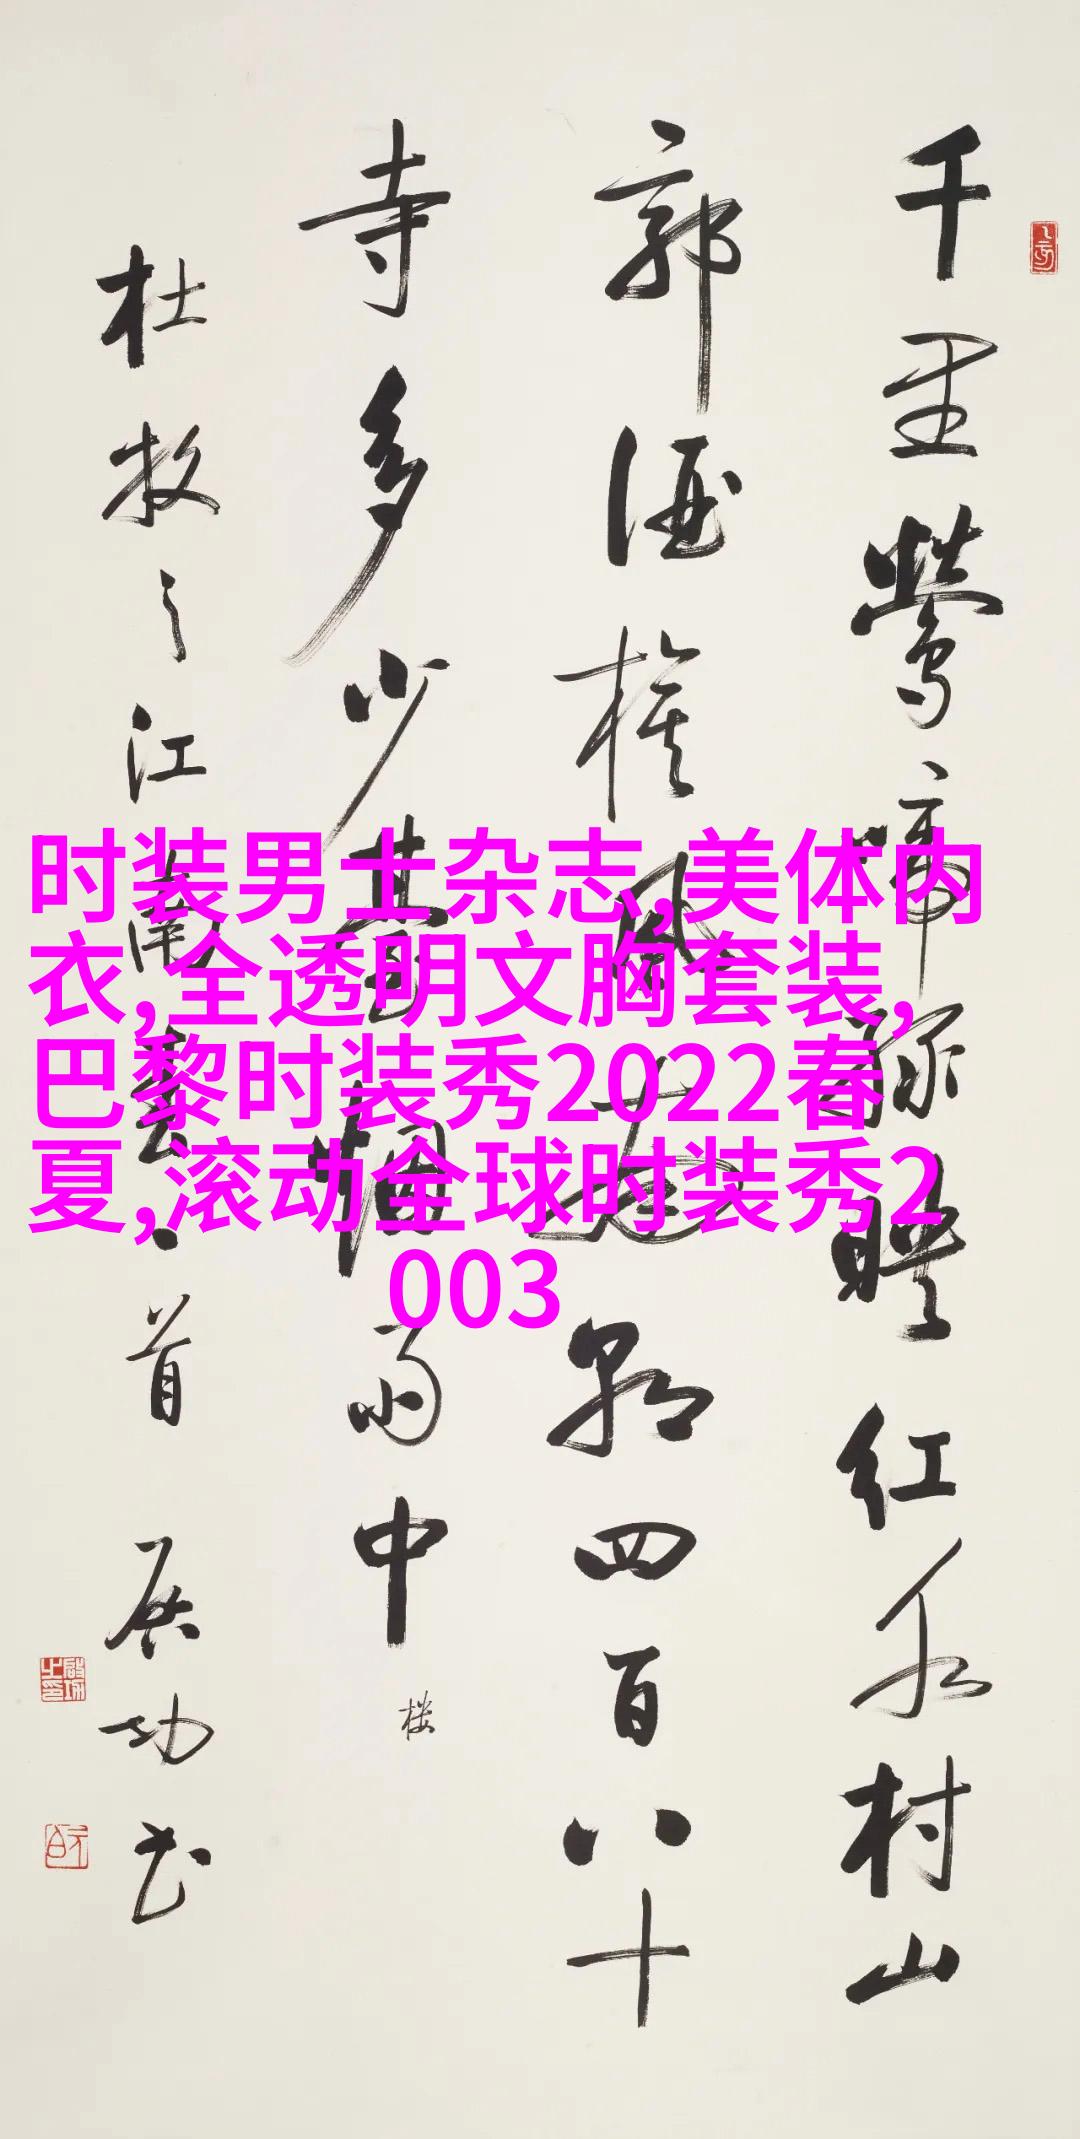 千里鶯啼緑暎紅水村山
郭酒旗風南朝四百八十
寺多少臺烟雨中
楼
杜牧之江南春一首 启功书
时装男士杂志,美体内
衣,全透明文胸套装,
巴黎时装秀2022春
夏,滚动全球时装秀2
003